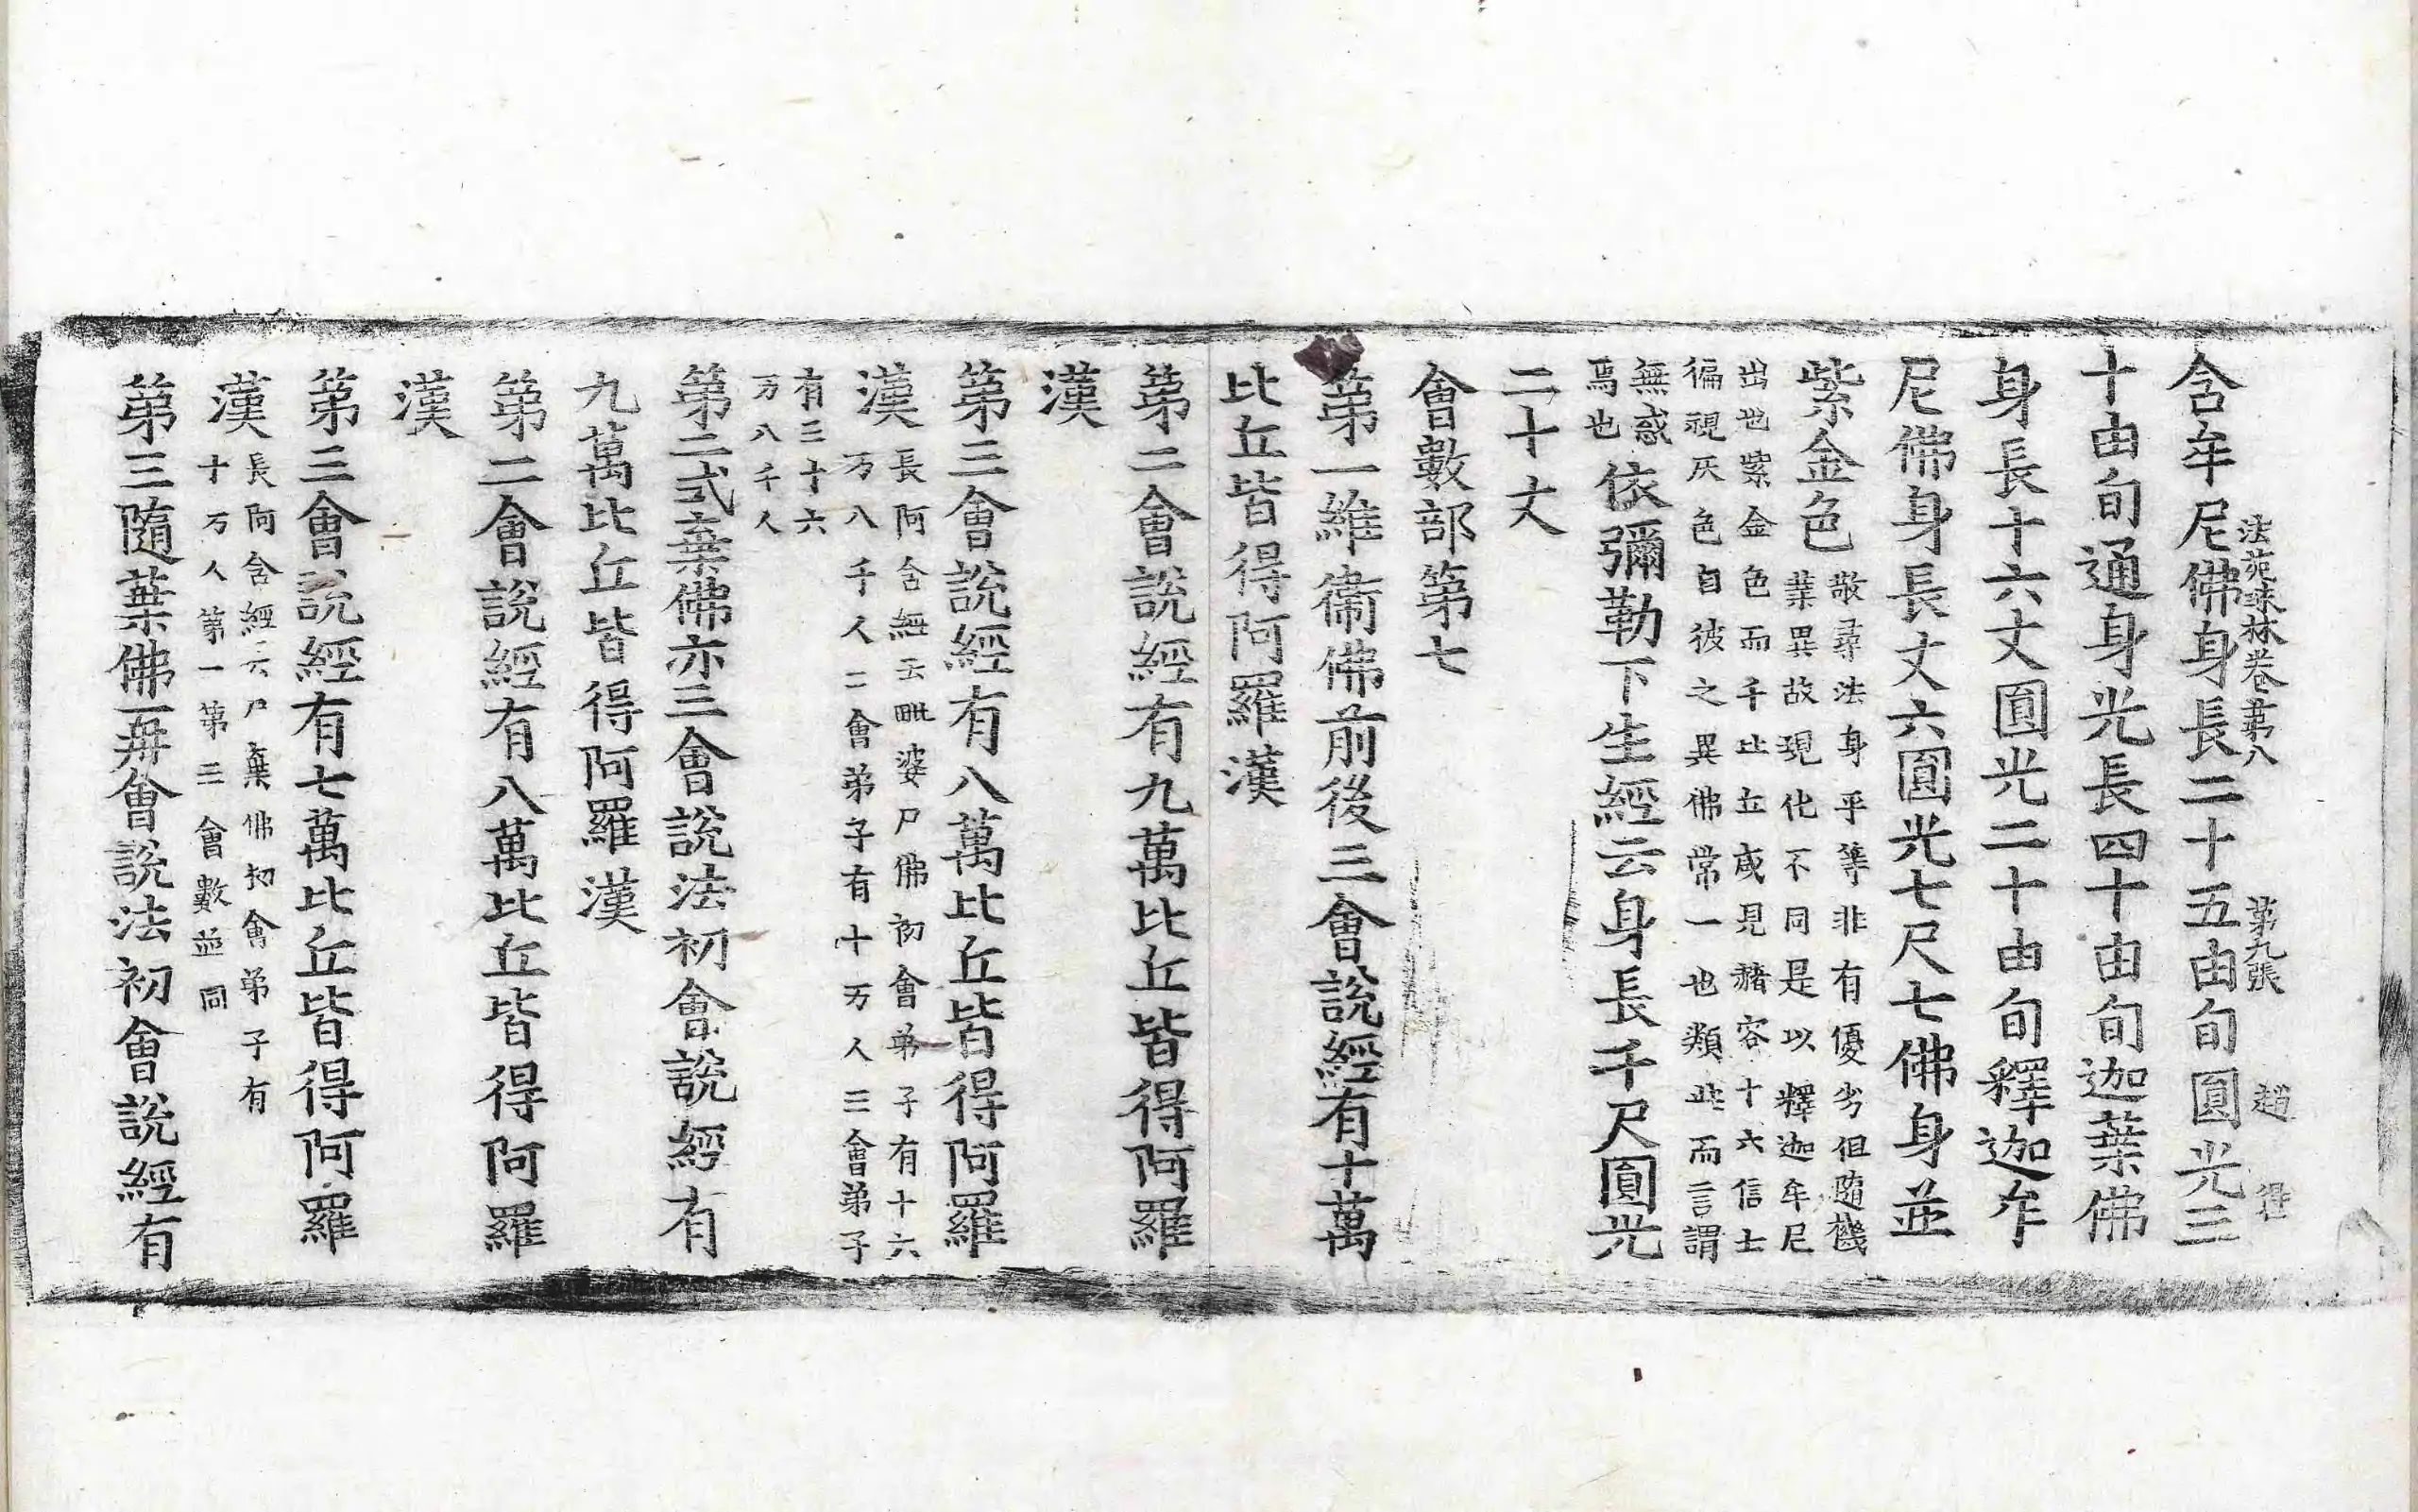 法苑珠林卷第八 第九張 趙
含牟尼佛身長二十五由旬圓光三
十由旬通身光長四十由旬迦葉佛
身長十六丈圓光二十由旬釋迦牟
尼佛身長丈六圓光七尺七佛身並
紫金色
敬尋法身乎等非有優劣但隨機
業異故現化不同是以釋迦牟尼
出世紫金色而千比丘咸見赭容十六信士
徧視灰色自彼之異佛常一也類此而言謂
無惑
焉也
依彌勒下生經云身長千尺圓光
二十丈
會數部第七
第一維衞佛前後三會說經有十萬
比丘皆得阿羅漢
第二會說經有九萬比丘皆得阿羅
漢
第三會說經有八萬比丘皆得阿羅
漢
長阿含經云毗婆尸佛初會弟子有十六
万八千人二會弟子有十万人三會弟子
有三十六
万八千人
第二式棄佛亦三會說法初會說經有
九萬比丘皆得阿羅漢
第二會說經有八萬比丘皆得阿羅
漢
第三會說經有七萬比丘皆得阿羅
漢
長阿含經云尸棄佛初會弟子有
十万人第一第三會數並同
第三隨葉佛再會說法初會說經有